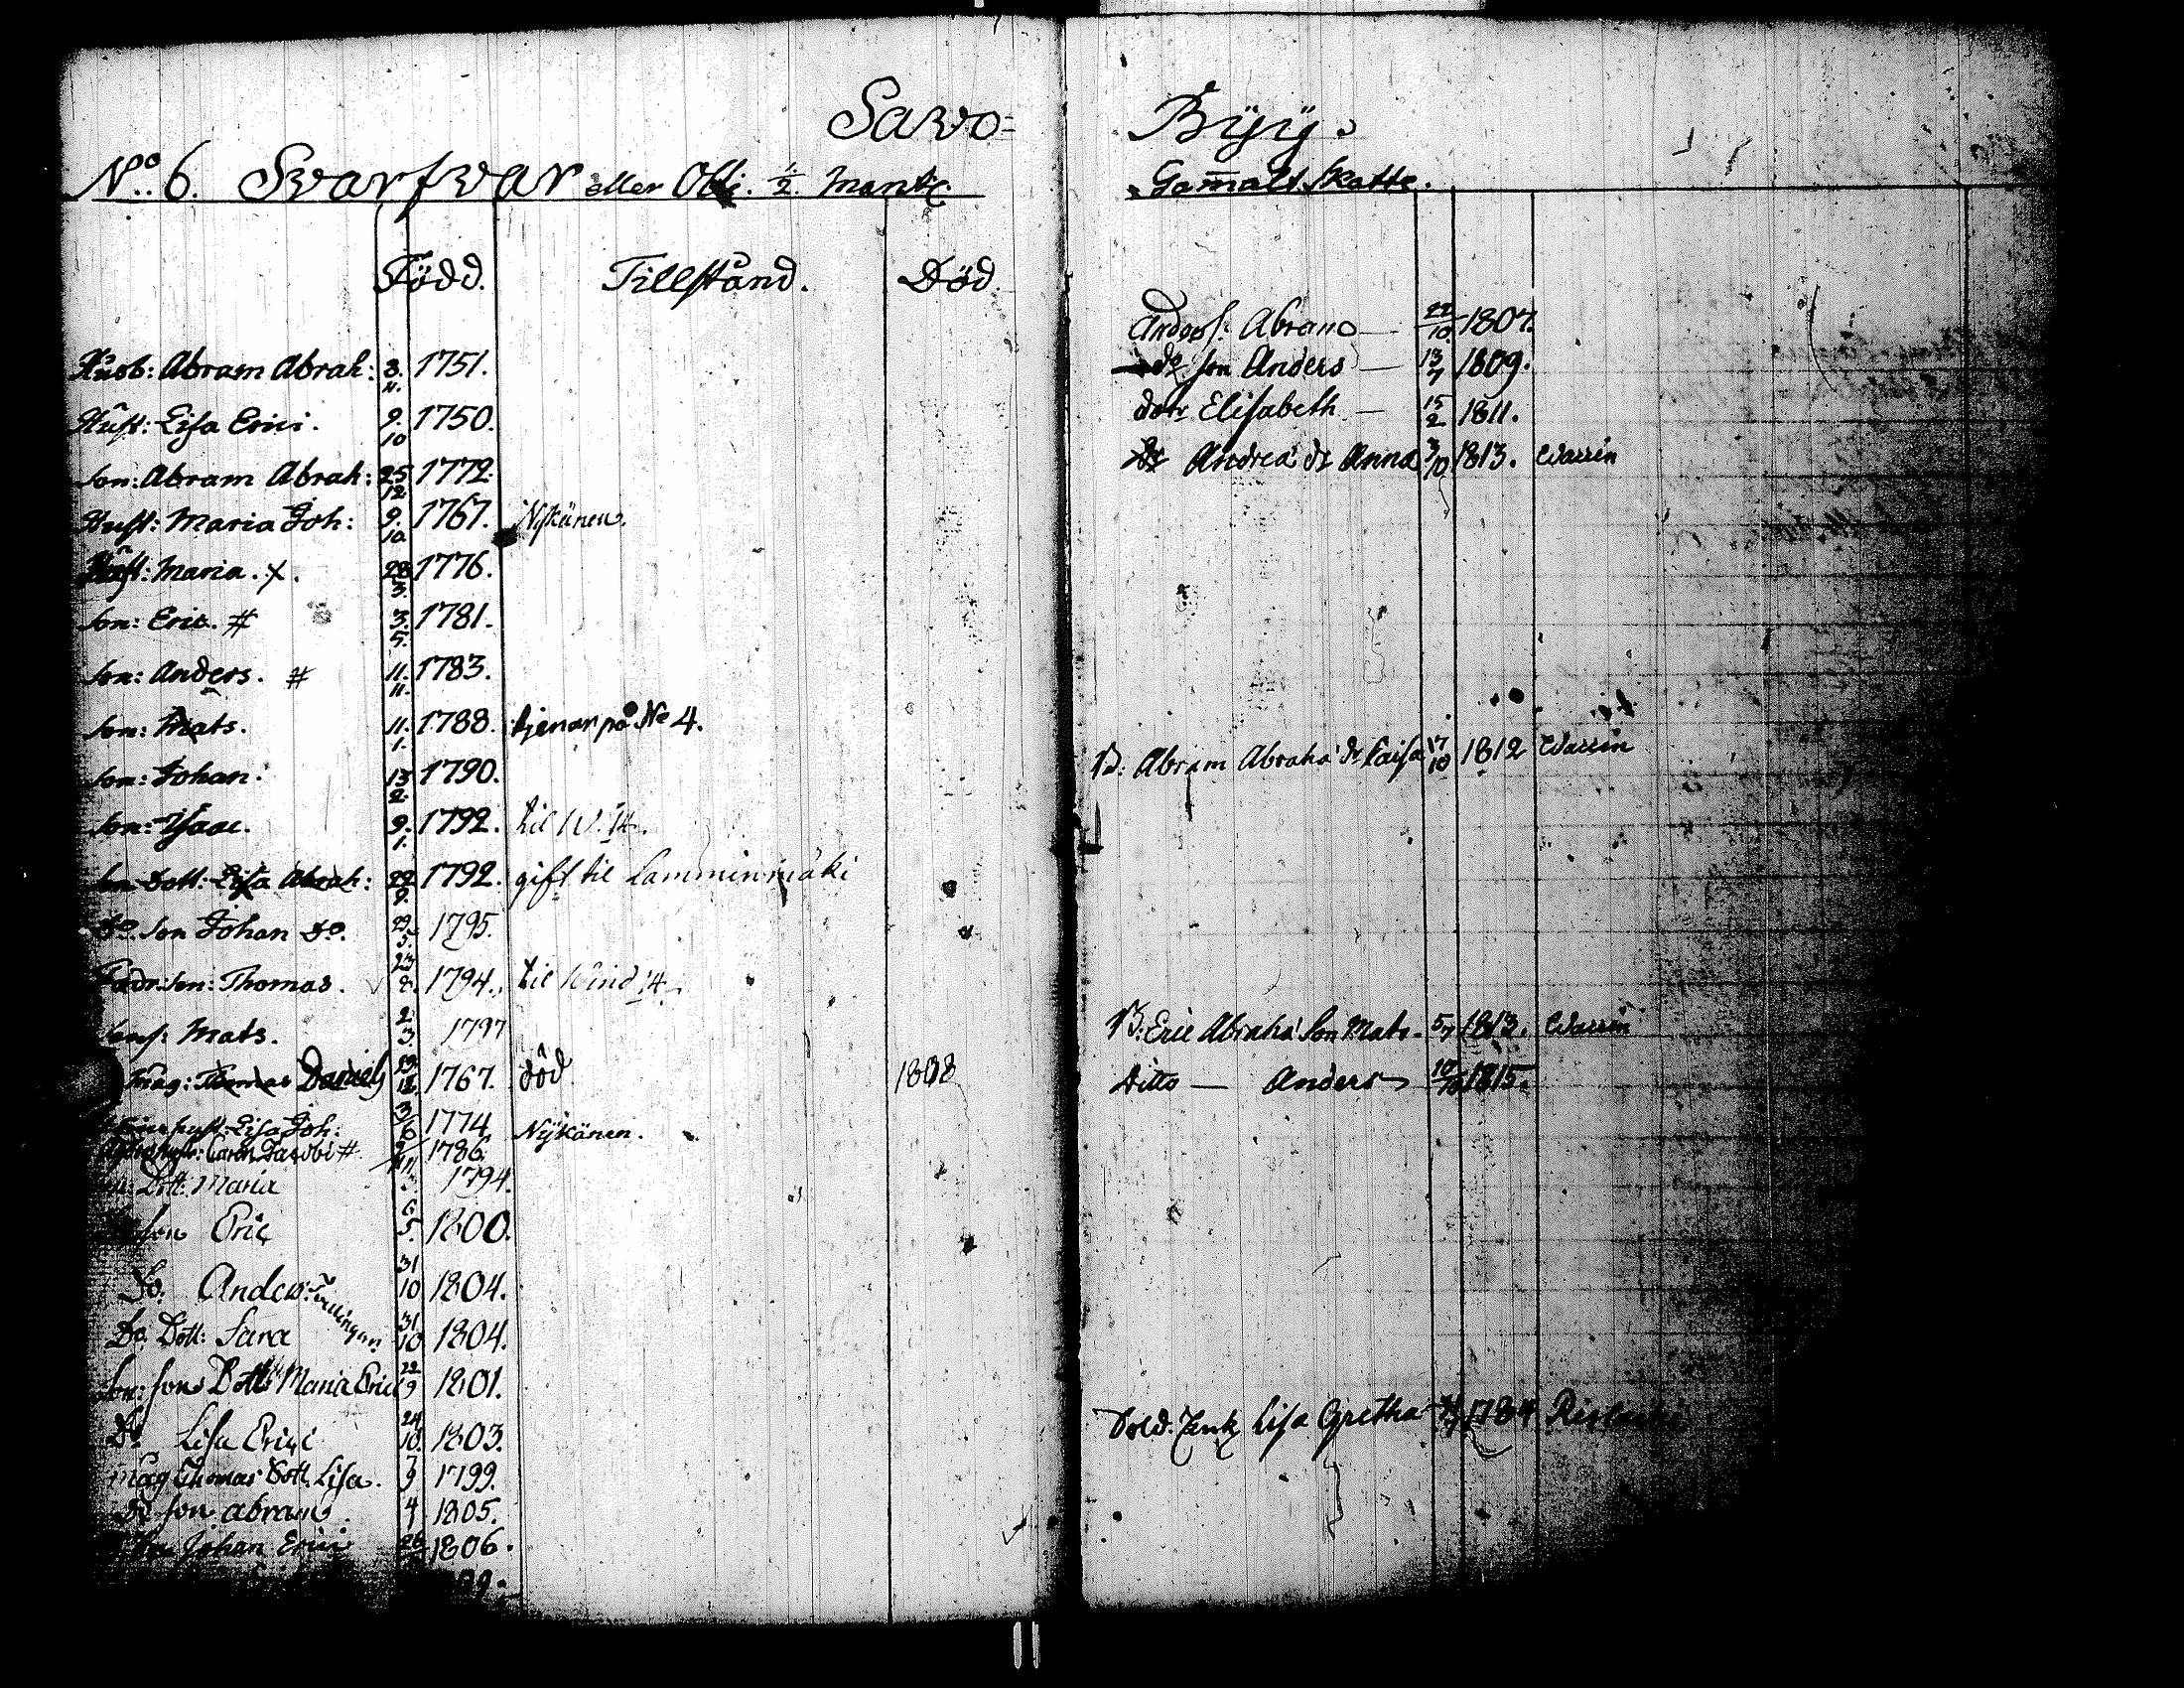 Savo=
No. 6. Svarfvar eller Olli. 1/2 Mantl.
Född. Tillstånd. Död.
Husb: Abram Abrah: 8. 11. 1751.
Hust: Lisa Erici. 9. 10 1750.
Son: Abram Abrah: 25 12 1772.
Hust: Maria Joh: 9. 10. 1767. Nykänen.
Hust: Maria. X. 28 3. 1776.
Son: Eric. # 3. 5. 1781.
Son: Anders. # 11. 11. 1783.
Son: Mats. 11. 1. 1788. tjenar på No 4.
Son: Johan. 13 2. 1790.
Son: Isaac. 9. 1. 1792. til W. 14.
Son Dott: Lisa Abrah: 22 9. 1792. gift til Lamminmäki
Do. Son Johan Do. 29 5. 1795.
Son: Thomas. 23 8. 1794. til Wind 14
Mats. 2 3. 1797
Måg: Thomas Daniels 1767. död 1808
Hust: Lisa Joh: 3/6 1774 Nykänen.
Caren Jacobi # 1786.
Dott: Maria 1794.
Son Eric 6 5. 1800.
Do. Anders 31 10 1804. Tvillingar.
Do. Dott: Sara 31 10 1804.
Son: Sons Dott: Maria Erici 22 9 1801.
Do Lisa Erici 24 10. 1803.
Måg Thomas Dott. Lisa. 7 9 1799.
Do Son Abram. 4 1 1805.
Johan Erici 26 1806.
Byy.
Gammalt Skatte.
Anders S. Abram — 22 10. 1807.
do Son Anders — 13 7 1809.
dotr Elisabeth — 15 2 1811.
Andreæ dr Anna 3/10 1813. Waccin
B: Abram Abrahs dr Caisa 17 10 1812 Waccin
B: Eric Abrahs Son Mats. 5/7 1813. Waccin
Ditto — Anders 10/10 1815.
Sold. Enk. Lisa Gretha 1784